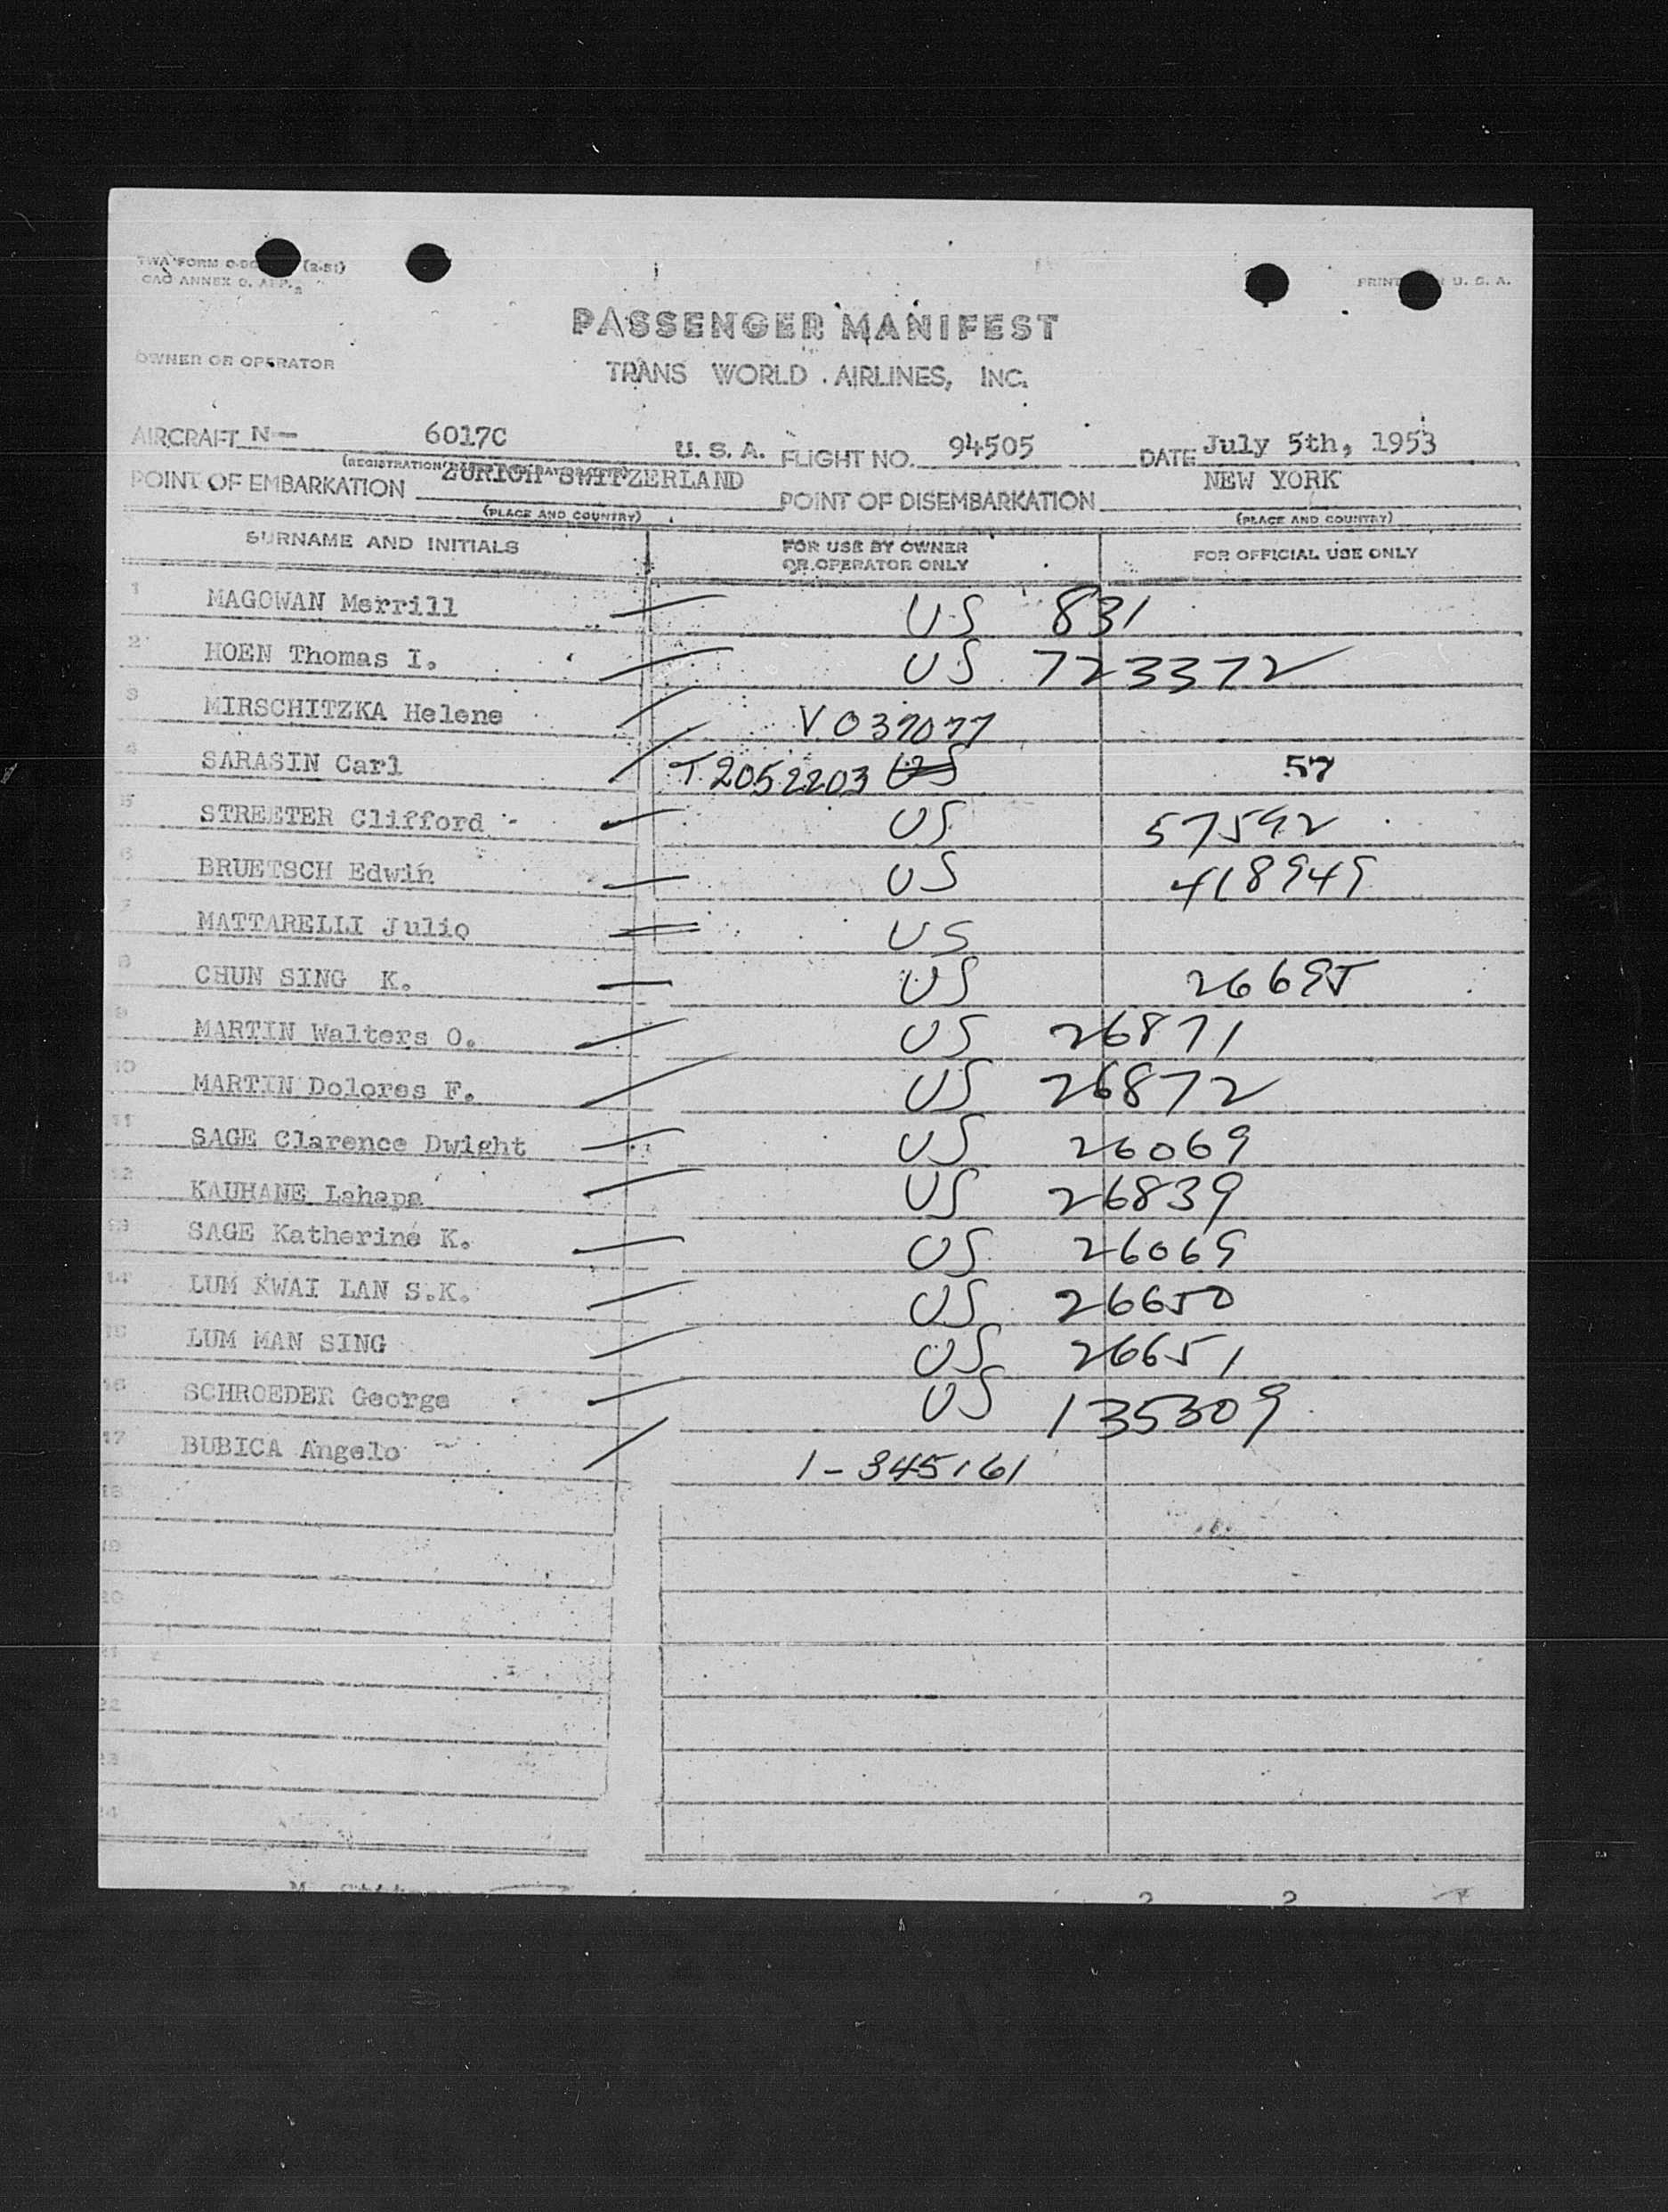 TWA FORM (2-51)
PRINTED IN U. S. A.
PASSENGER MANIFEST
OWNER OR OPERATOR
TRANS WORLD AIRLINES, INC.
AIRCRAFT N- 6017C U. S. A. FLIGHT NO. 94505 DATE July 5th, 1953
POINT OF EMBARKATION ZURICH SWITZERLAND POINT OF DISEMBARKATION NEW YORK
(PLACE AND COUNTRY) (PLACE AND COUNTRY)
SURNAME AND INITIALS FOR USE BY OWNER OR OPERATOR ONLY FOR OFFICIAL USE ONLY
1 MAGOWAN Merrill US 831
2 HOEN Thomas I. US 723372
3 MIRSCHITZKA Helene
4 SARASIN Carl T2052203 US 57
5 STREETER Clifford US 57592
6 BRUETSCH Edwin US 418949
7 MATTARELLI Julio US
8 CHUN SING K. US 26695
9 MARTIN Walters O. US 26871
10 MARTIN Dolores F. US 26872
11 SAGE Clarence Dwight US 26069
12 KAUHANE Lahapa US 26839
13 SAGE Katherine K. US 26069
14 LUM KWAI LAN S.K. US 26650
15 LUM MAN SING US 26651
16 SCHROEDER George US 135309
17 BUBICA Angelo 1-345161
18
19
20
21
22
23
24